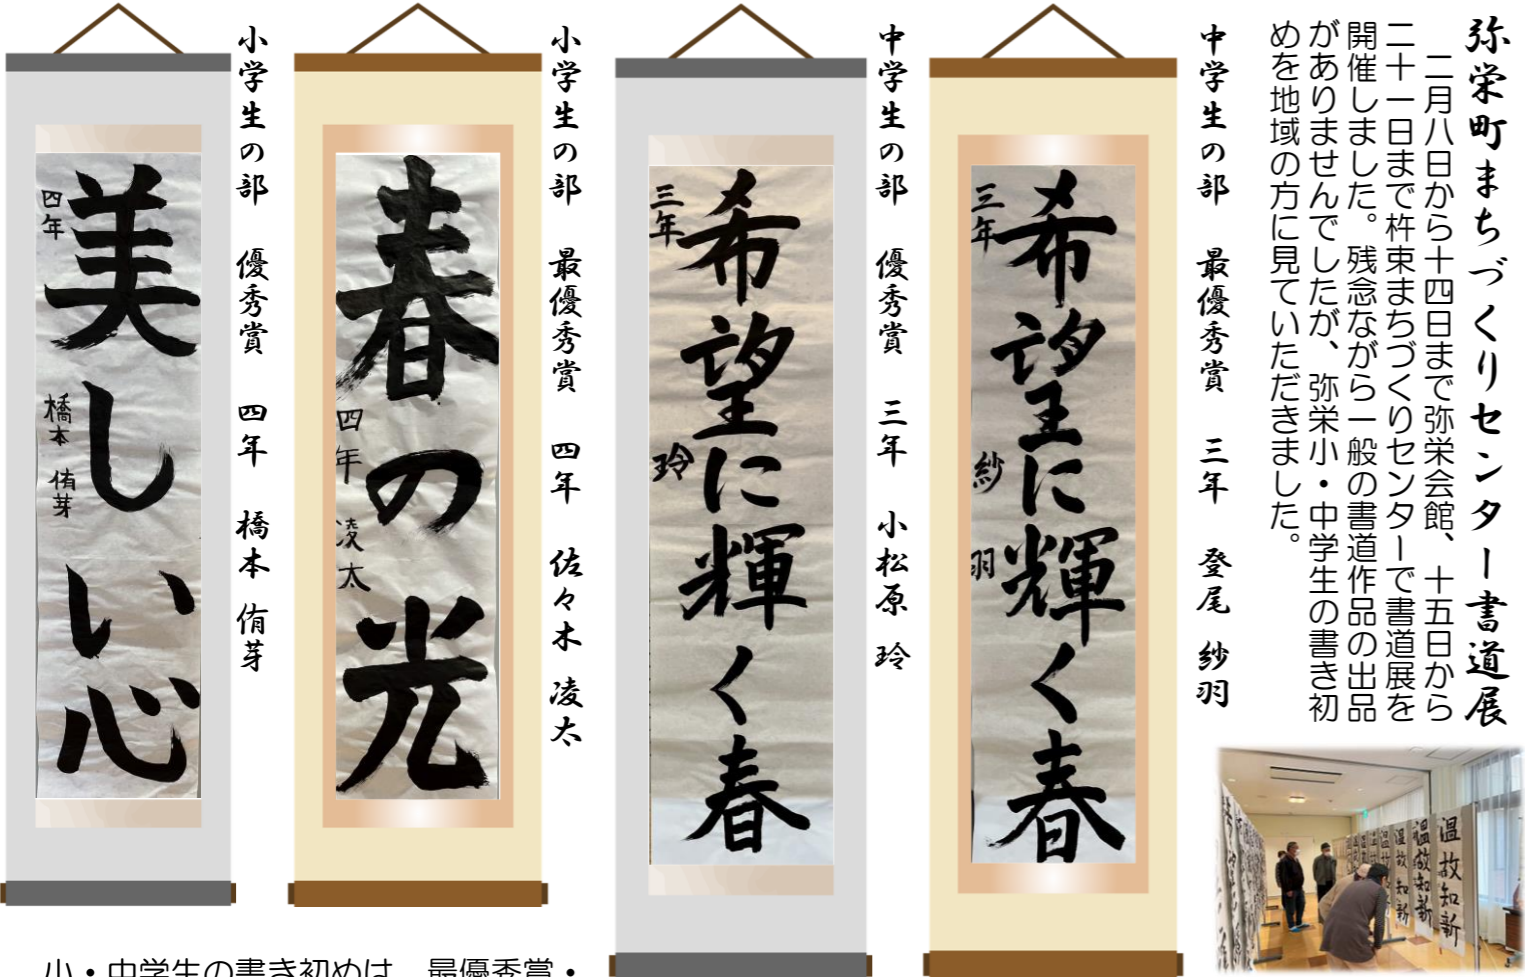 弥栄町まちづくりセンター書道展
二月八日から十四日まで弥栄会館、十五日から
二十一日まで杵束まちづくりセンターで書道展を
開催しました。残念ながら一般の書道作品の出品
がありませんでしたが、弥栄小・中学生の書き初
めを地域の方に見ていただきました。
中学生の部 最優秀賞 三年 登尾 紗羽
希望に輝く春
三年 紗羽
中学生の部 優秀賞 三年 小松原 玲
希望に輝く春
三年 玲
小学生の部 最優秀賞 四年 佐々木 凌太
春の光
四年 凌太
小学生の部 優秀賞 四年 橋本 侑芽
美しい心
四年 橋本 侑芽
温故知新
温故知新
温故知新
小・中学生の書き初めは、最優秀賞・